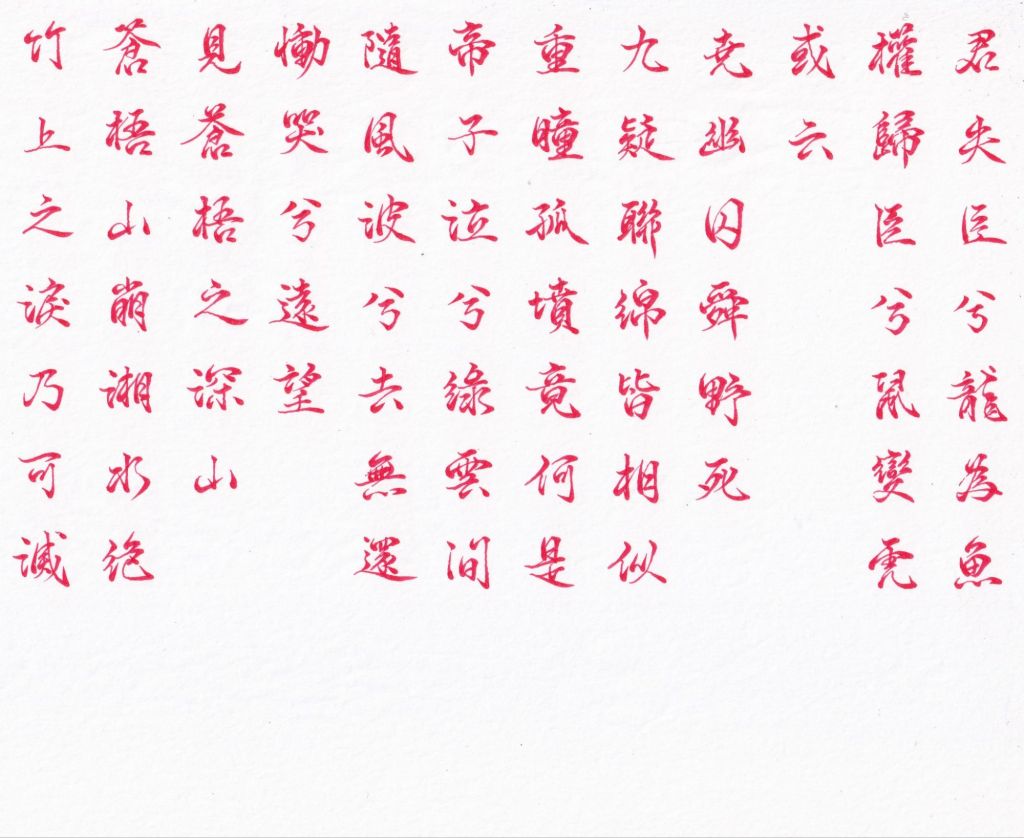 君失臣兮龍為魚
權歸臣兮鼠變虎
或云
堯幽囚舜野死
九疑聯綿皆相似
重瞳孤墳竟何是
帝子泣兮綠雲間
隨風波兮去無還
慟哭兮遠望
見蒼梧之深山
蒼梧山崩湘水絕
竹上之淚乃可滅